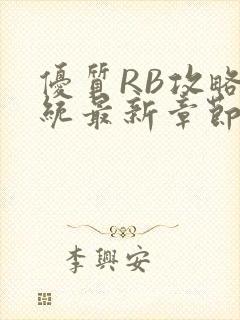 優質RB攻略
統最新章節
李興安